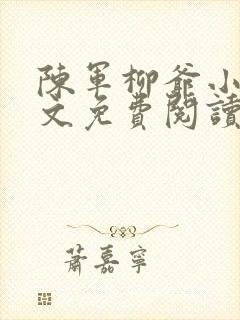 陳軍柳爺小
文免費閱讀
蕭嘉寧